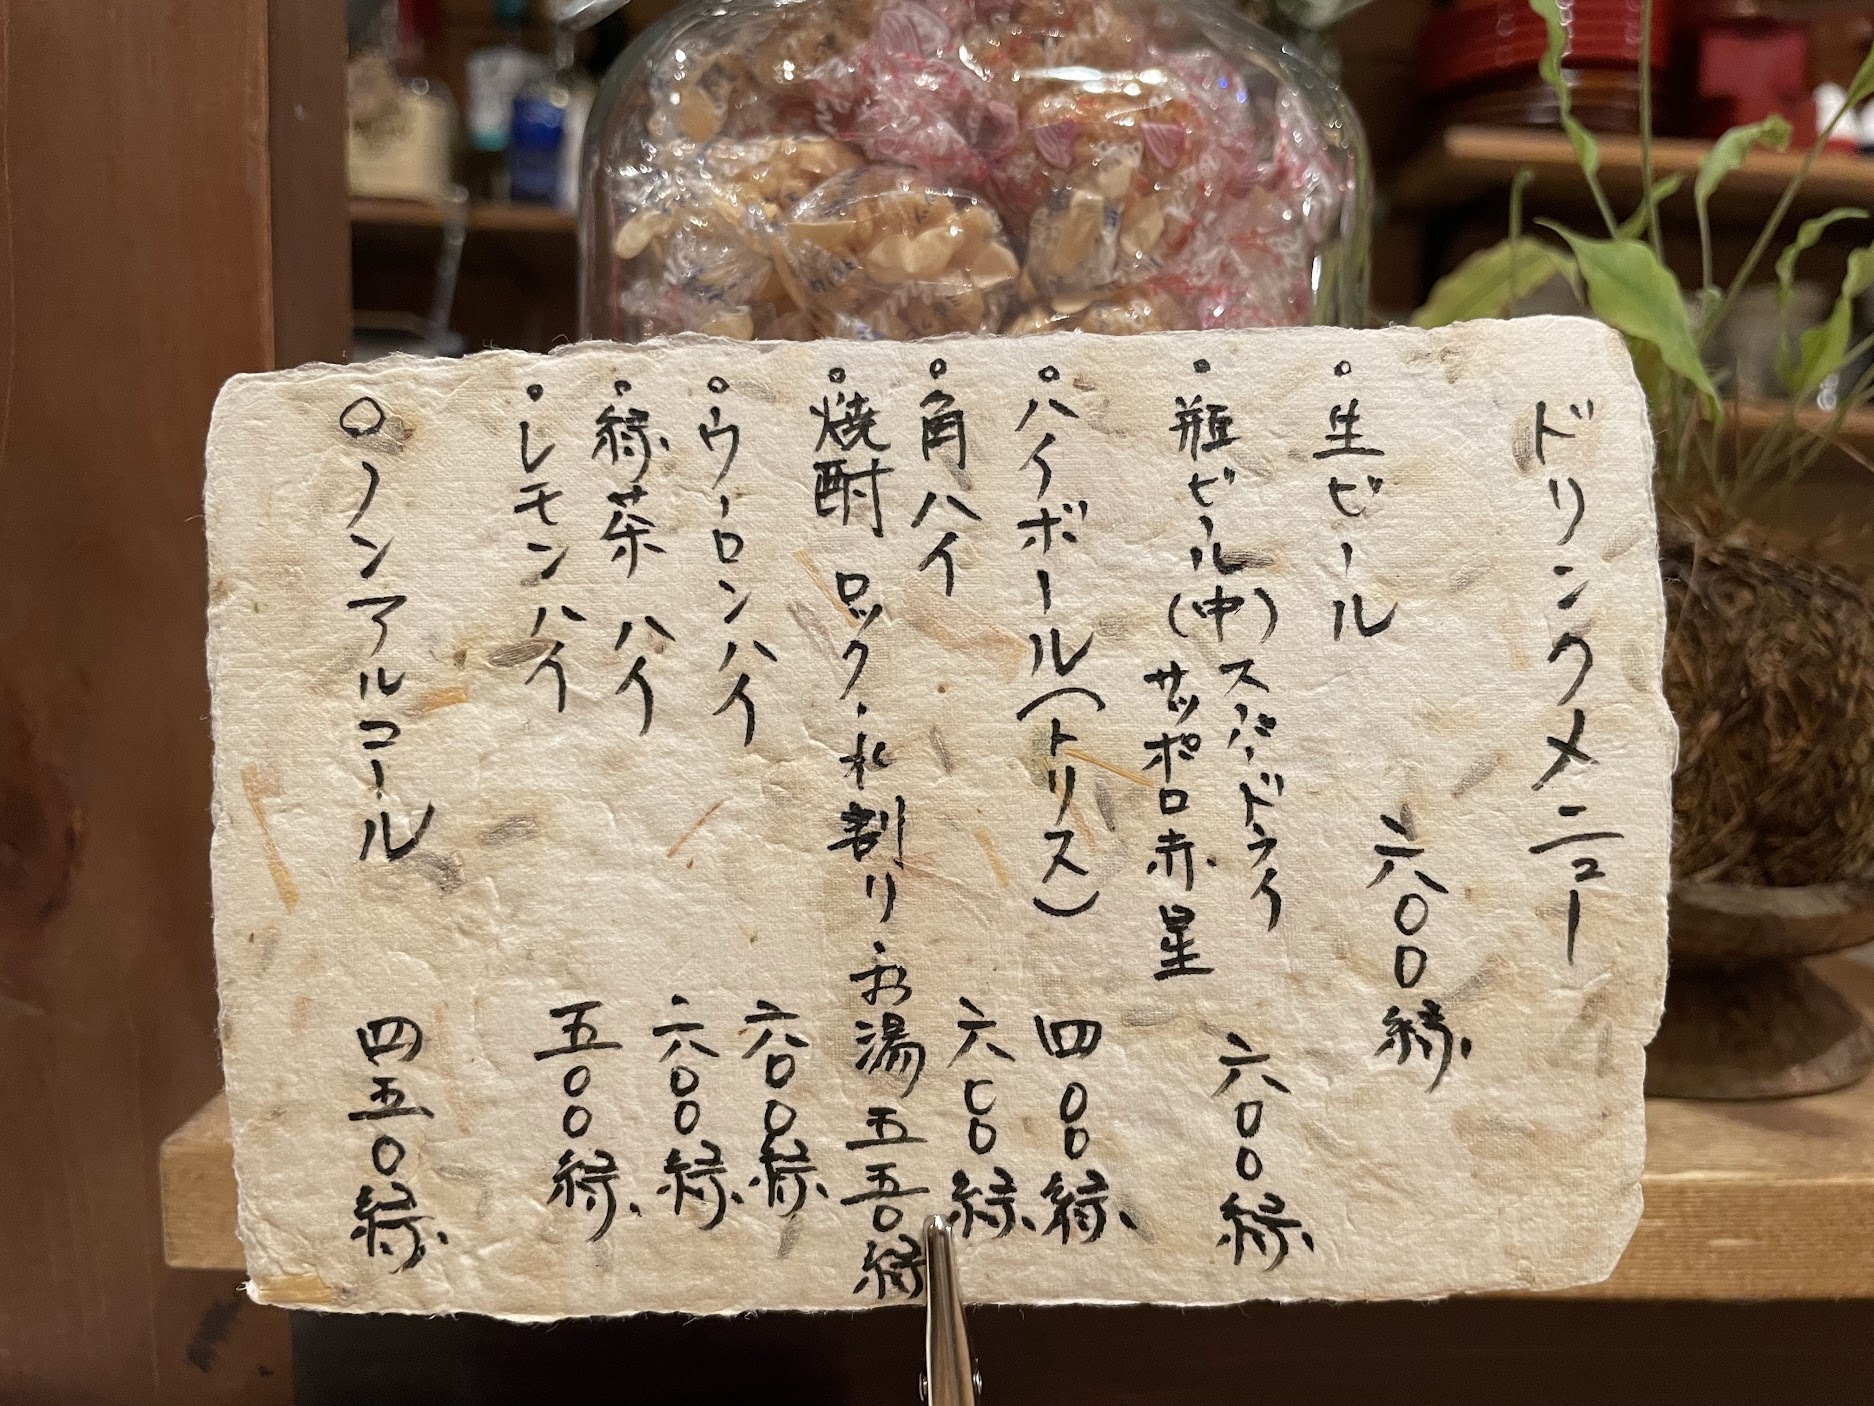 ドリンクメニュー
○生ビール 六〇〇縁
○瓶ビール(中)スパードライ
サッポロ赤星 六〇〇縁
○ハイボール(トリス) 四〇〇縁
○角ハイ 六〇〇縁
○焼酎 ロック・水割り・お湯 五五〇縁
○ウーロンハイ 六〇〇縁
○緑茶ハイ 六〇〇縁
○レモンハイ 五〇〇縁
○ノンアルコール 四五〇縁